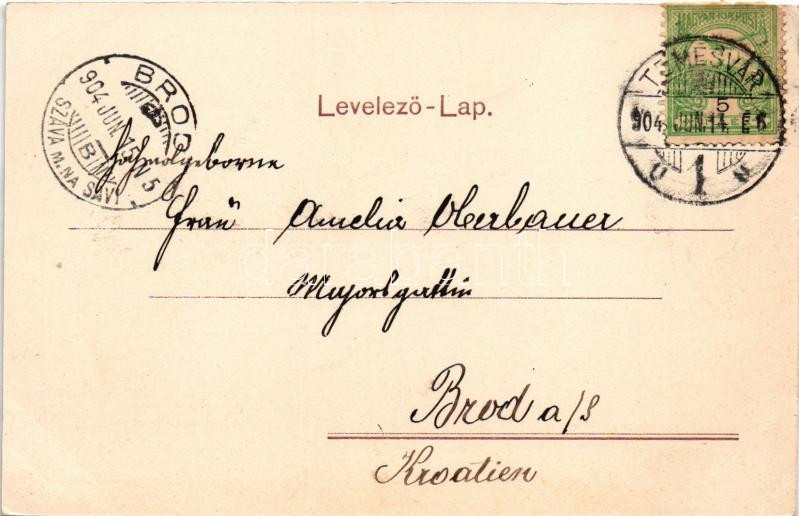 MAGYAR KIR. POSTA
5
TEMESVÁR
904 JUN. 14. É 6
1
BROD
904 JUN 15 N 5
B
SZÁVA M. NA SAVI
Levelező-Lap.
Hochwolgeborne
Frau Amelia Oberbauer
Majorsgattin
Brod a/S
Kroatien
darabanth